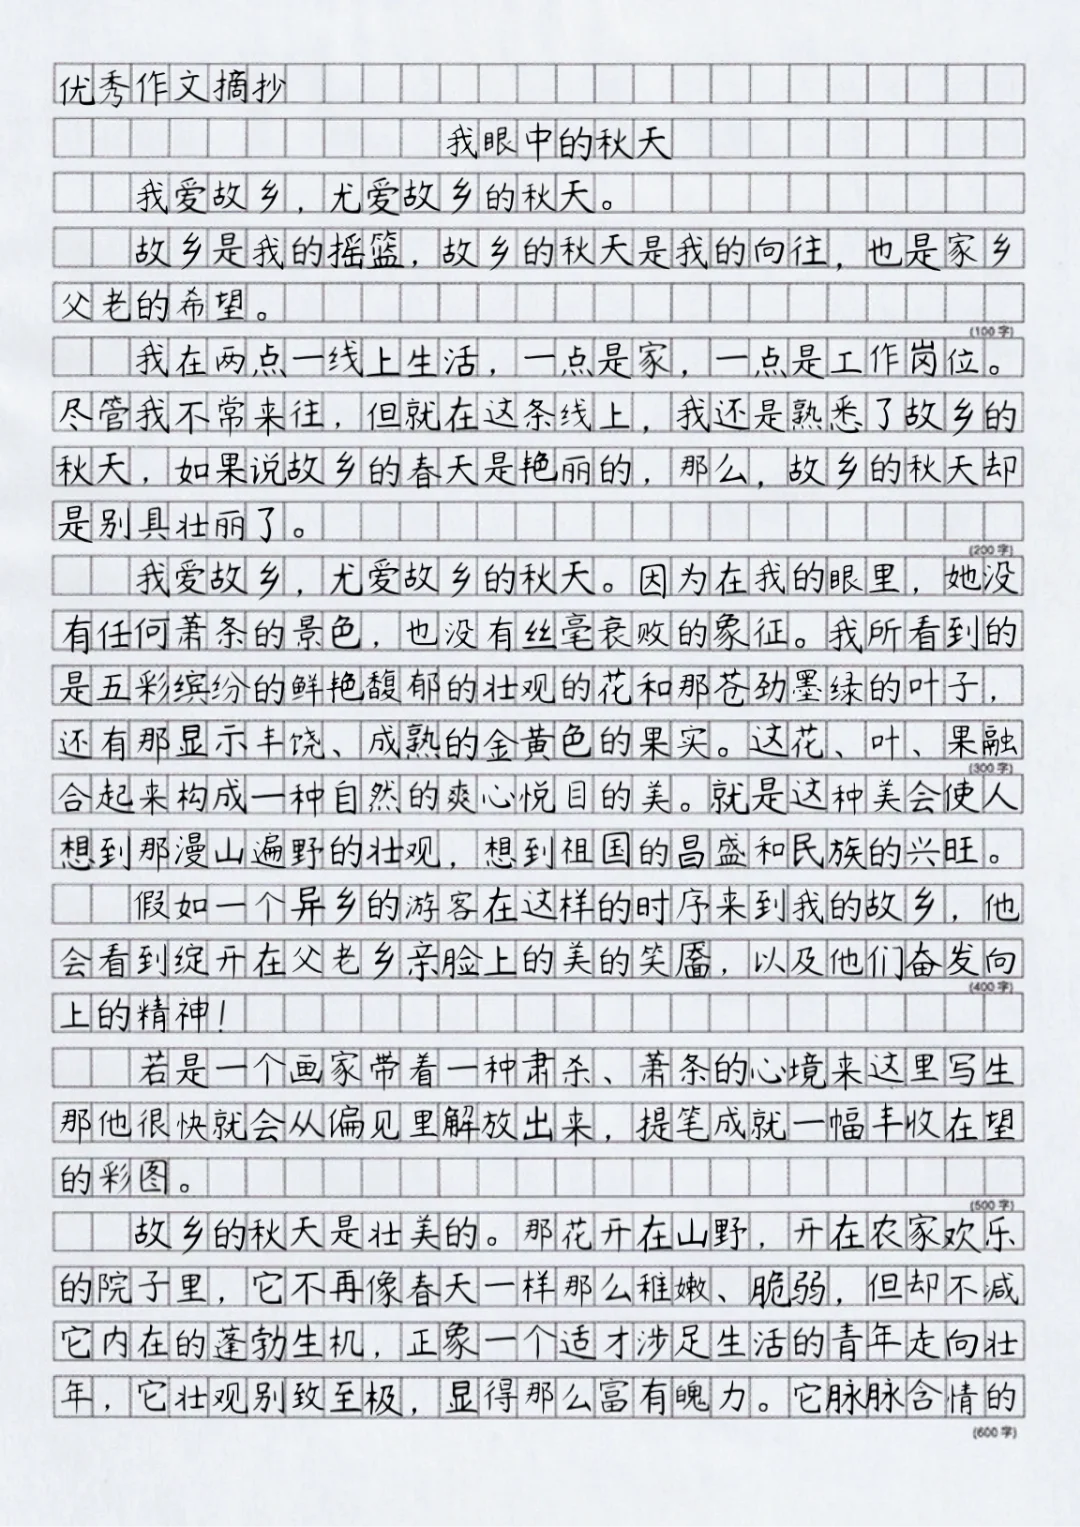 优秀作文摘抄
我眼中的秋天
我爱故乡，尤爱故乡的秋天。
故乡是我的摇篮，故乡的秋天是我的向往，也是家乡
父老的希望。
(100字)
我在两点一线上生活，一点是家，一点是工作岗位。
尽管我不常来往，但就在这条线上，我还是熟悉了故乡的
秋天，如果说故乡的春天是艳丽的，那么，故乡的秋天却
是别具壮丽了。
(200字)
我爱故乡，尤爱故乡的秋天。因为在我的眼里，她没
有任何萧条的景色，也没有丝毫衰败的象征。我所看到的
是五彩缤纷的鲜艳馥郁的壮观的花和那苍劲墨绿的叶子，
还有那显示丰饶、成熟的金黄色的果实。这花、叶、果融
(300字)
合起来构成一种自然的爽心悦目的美。就是这种美会使人
想到那漫山遍野的壮观，想到祖国的昌盛和民族的兴旺。
假如一个异乡的游客在这样的时序来到我的故乡，他
会看到绽开在父老乡亲脸上的美的笑靥，以及他们奋发向
(400字)
上的精神！
若是一个画家带着一种肃杀、萧条的心境来这里写生
那他很快就会从偏见里解放出来，提笔成就一幅丰收在望
的彩图。
(500字)
故乡的秋天是壮美的。那花开在山野，开在农家欢乐
的院子里，它不再像春天一样那么稚嫩、脆弱，但却不减
它内在的蓬勃生机，正象一个适才涉足生活的青年走向壮
年，它壮观别致至极，显得那么富有魄力。它脉脉含情的
(600字)